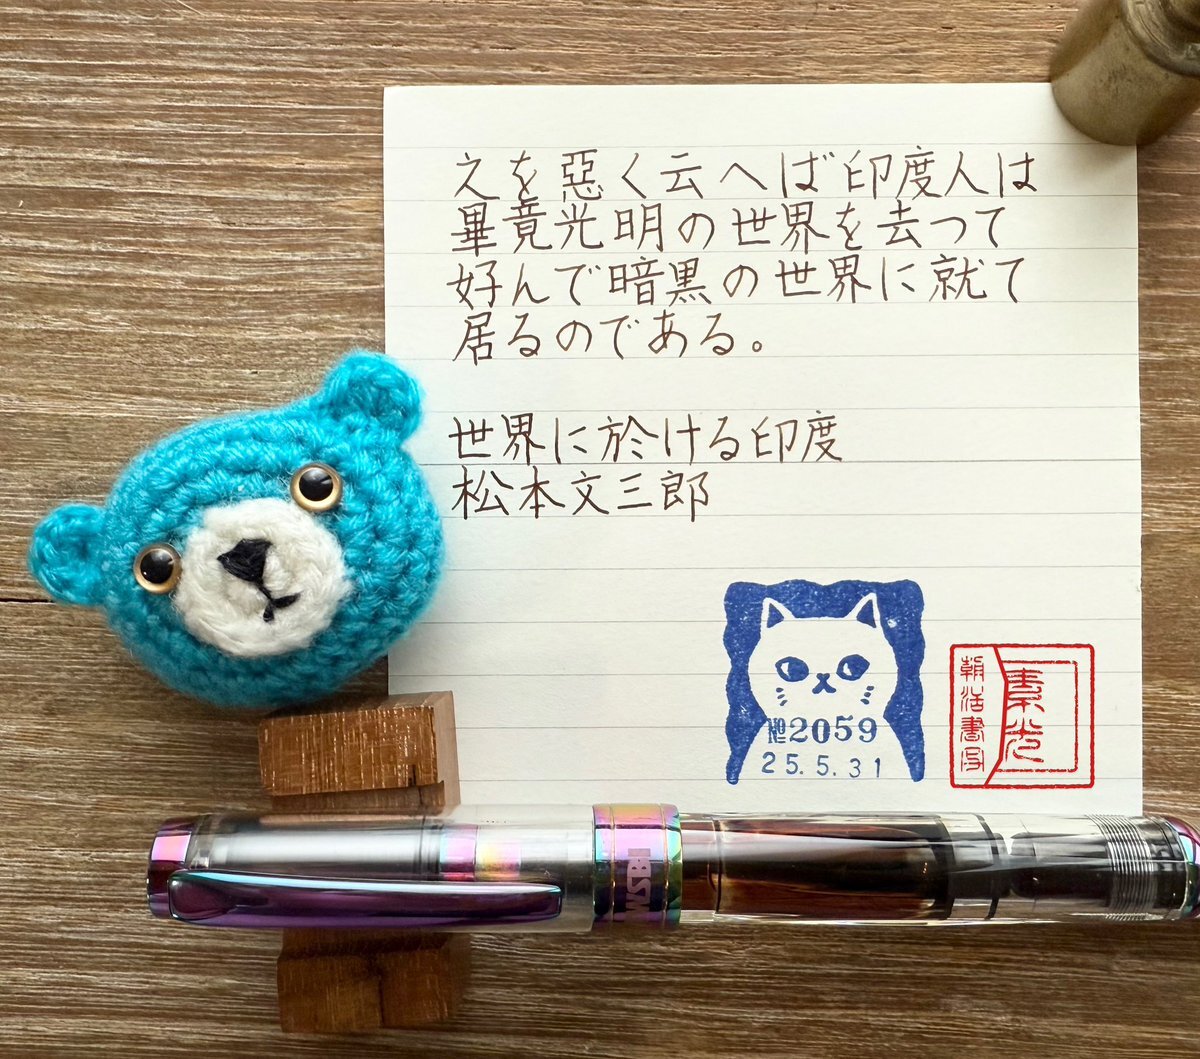 之を惡く云へば印度人は
畢竟光明の世界を去つて
好んで暗黒の世界に就て
居るのである。
世界に於ける印度
松本文三郎
№2059
25.5.31
朝活書写
素光
WSBI